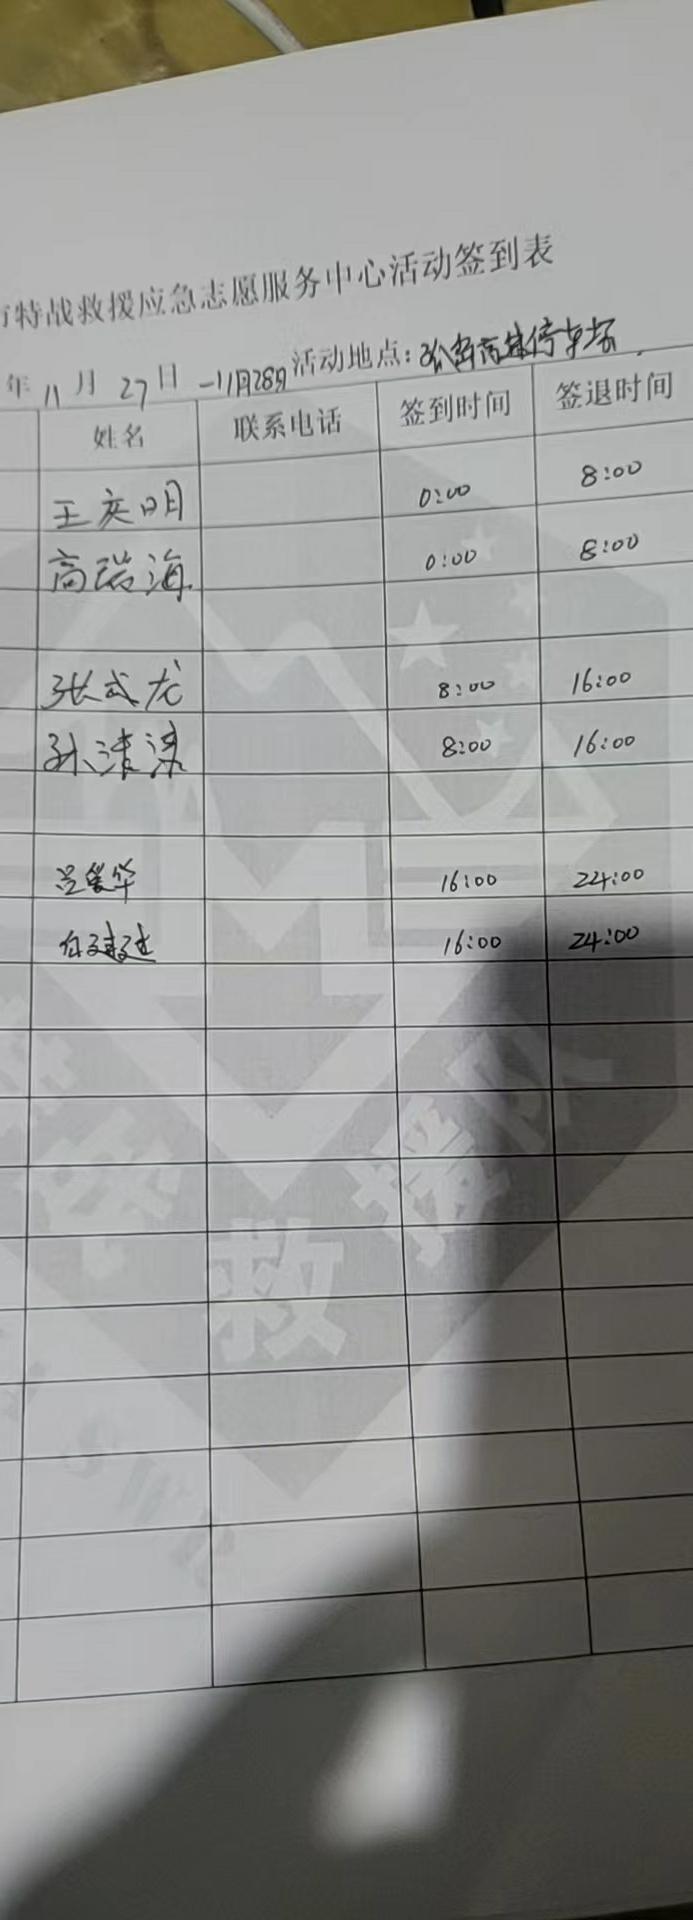 特战救援应急志愿服务中心活动签到表
年 11 月 27 日 -11月28日 活动地点: 高速停车场
姓名 联系电话 签到时间 签退时间
王庆明 0:00 8:00
高瑞海 0:00 8:00
张武龙 8:00 16:00
孙清 8:00 16:00
吕 华 16:00 24:00
白建 16:00 24:00
救援队